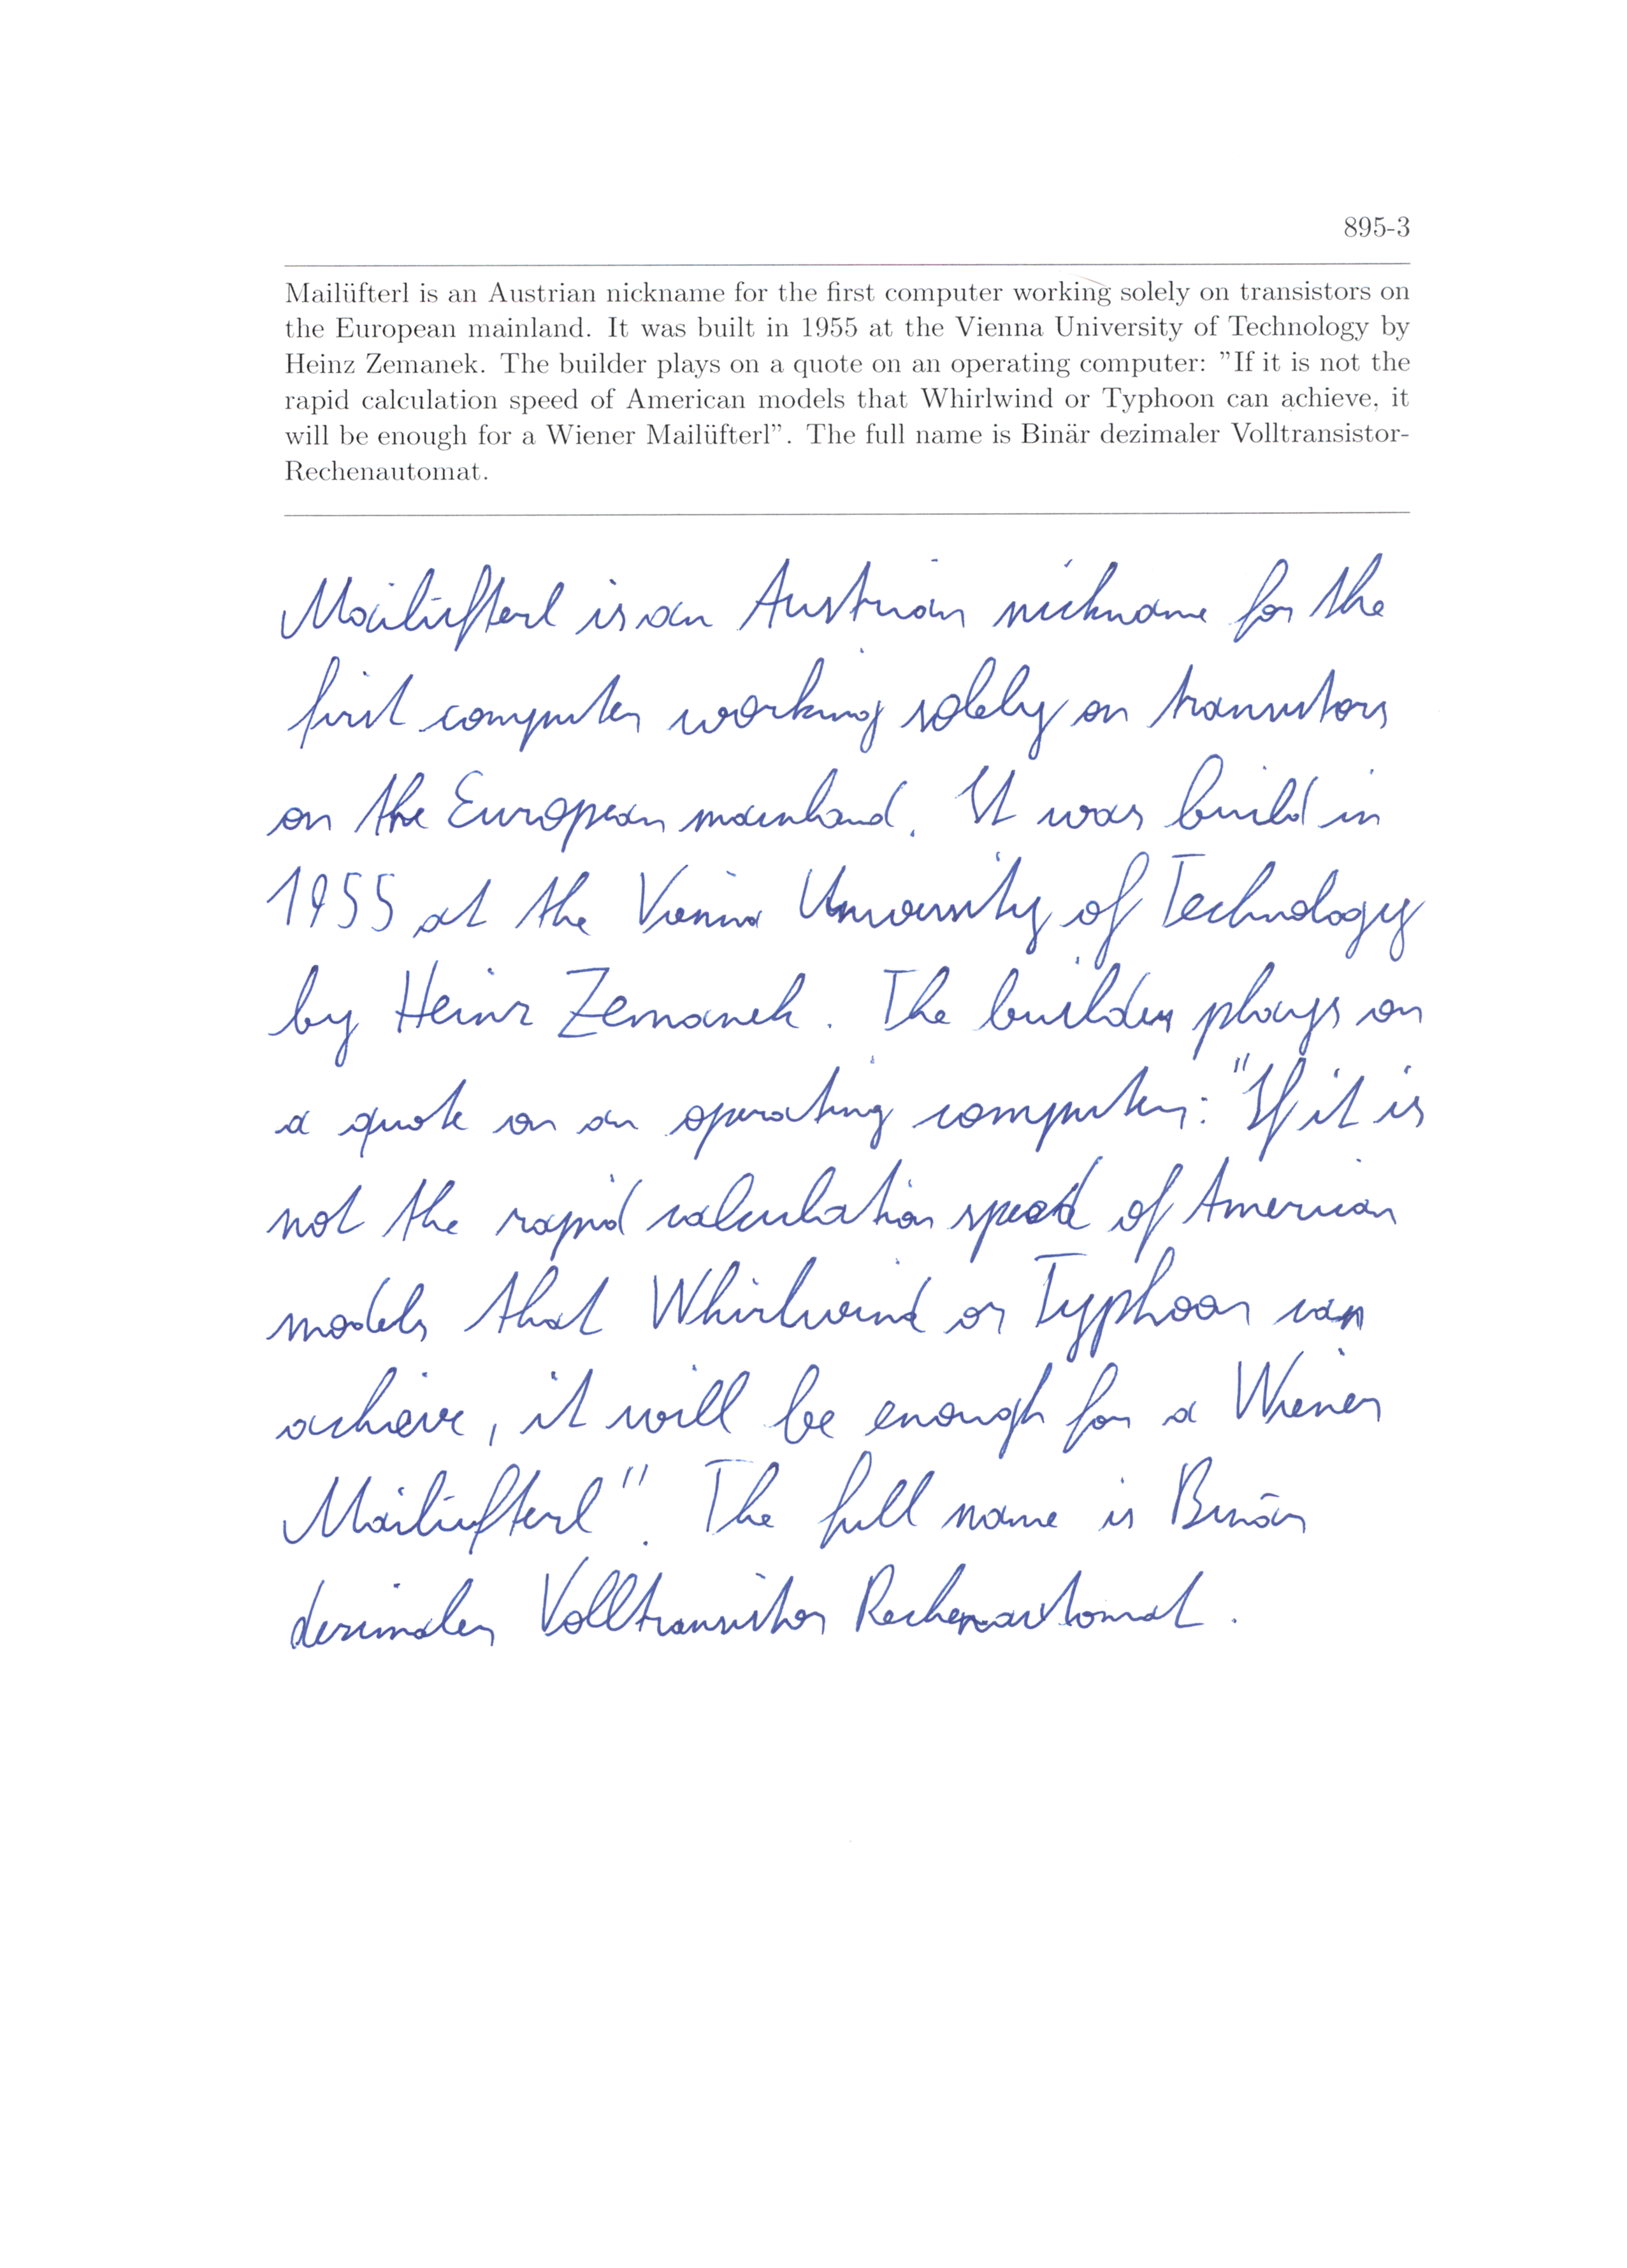 895-3
Mailüfterl is an Austrian nickname for the first computer working solely on transistors on
the European mainland. It was built in 1955 at the Vienna University of Technology by
Heinz Zemanek. The builder plays on a quote on an operating computer: "If it is not the
rapid calculation speed of American models that Whirlwind or Typhoon can achieve, it
will be enough for a Wiener Mailüfterl". The full name is Binär dezimaler Volltransistor-
Rechenautomat.
Mailüfterl is an Austrian nickname for the
first computer working solely on transistors
on the European mainland. It was build in
1955 at the Vienna University of Technology
by Heinz Zemanek. The builder plays on
a quote on an operating computer: "If it is
not the rapid calculation speed of American
models that Whirlwind or Typhoon can
achieve, it will be enough for a Wiener
Mailüfterl". The full name is Binär
dezimaler Volltransistor Rechenautomat.